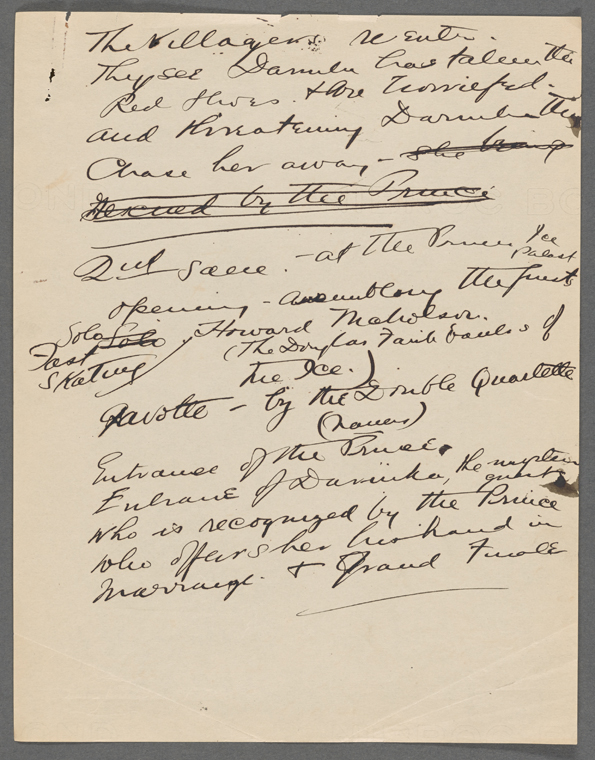 The Villagers reenter.
They see Darinka has taken the
Red Shoes & are horrified.
and threatening Darinka They
Chase her away - she being
rescued by the Prince
2nd Scene. - at the Princes Ice Palast
opening - assembling the guests
Solo Solo Howard Nicholson.
Fast (The Douglas Fairbanks of
Skating the Ice.)
Gavotte - by the Double Quartette
Entrance of the Prince.
Entrance of Darinka, the mysterious guest
who is recognized by the Prince
who offers her his hand in
Marriage. & Grand Finale